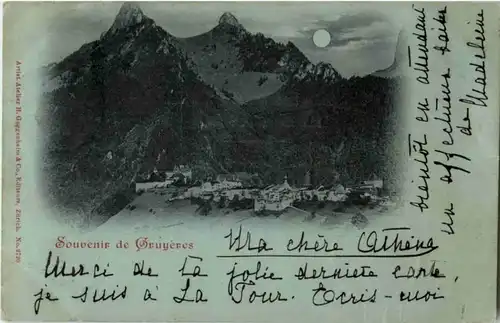 Souvenir de Gruyères
Ma chère Athéna
Merci de ta jolie dernière carte,
je suis à La Tour. Ecris-moi
bientôt en attendant
un affectueux
de Madeleine
Artist. Atelier H. Guggenheim & Co., Editeurs, Zürich. No.